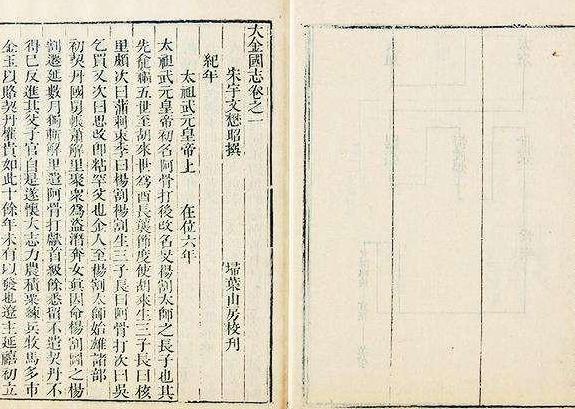 大金國志卷之一
宋宇文懋昭撰　埽葉山房校刊
紀年
太祖武元皇帝上　在位六年
太祖武元皇帝初名阿骨打後改名旻楊割太師之長子也其
先龕福五世至胡來世爲酋長襲節度使胡來生三子長曰核
里頗次曰蒲辣束季曰楊割楊割生三子長曰阿骨打次曰吳
乞買又次曰思改卽粘罕父也金人至楊割太師始雄諸部
初契丹國舅帳蕭解里聚衆爲盜潛奔女眞因命楊割圖之楊
割遷延數月獨斬解里遣阿骨打獻首級餘悉留不遣契丹不
得已反進其父子官自是遂懷大志力農積粟練兵牧馬多市
金玉以賂契丹權貴如此十餘年未有以發也遼主延禧初立